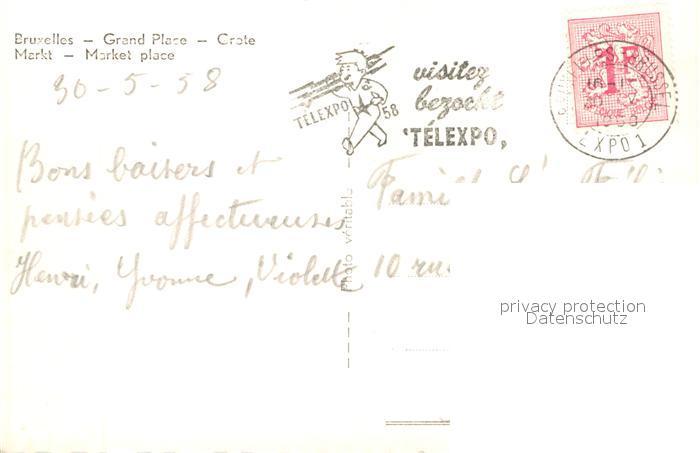 Bruxelles – Grand Place – Grote
Markt – Market place
30-5-58
TÉLEXPO 58
visitez
bezoekt
'TÉLEXPO,
1F
EXPO 1
Bons baisers et
pensées affectueuses
Henri, Yvonne, Violette
Photo véritable
10 rue
privacy protection
Datenschutz